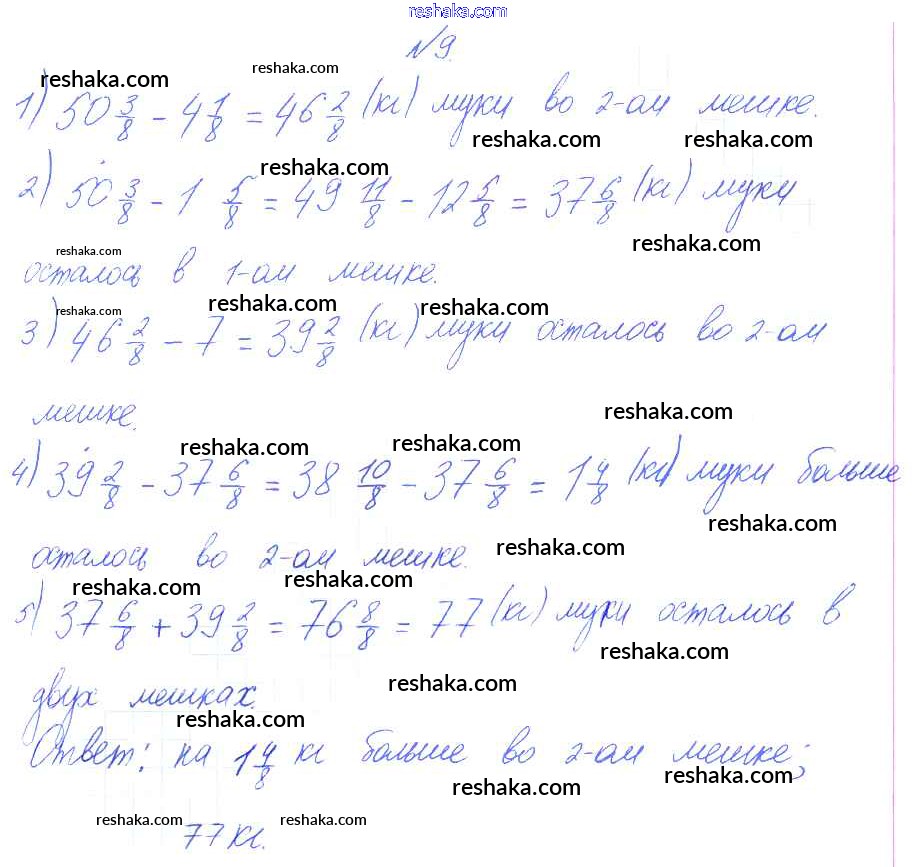 reshaka.com
№9.
reshaka.com reshaka.com
1) 50 3/8 - 4 1/8 = 46 2/8 (кг) муки во 2-ом мешке.
reshaka.com reshaka.com
reshaka.com
2) 50 3/8 - 1 5/8 = 49 11/8 - 12 5/8 = 37 6/8 (кг) муки
reshaka.com
reshaka.com
осталось в 1-ом мешке.
reshaka.com reshaka.com reshaka.com
3) 46 2/8 - 7 = 39 2/8 (кг) муки осталось во 2-ом
reshaka.com
мешке.
reshaka.com reshaka.com
4) 39 2/8 - 37 6/8 = 38 10/8 - 37 6/8 = 1 4/8 (кг) муки больше
reshaka.com
осталось во 2-ом мешке.
reshaka.com
reshaka.com reshaka.com
5) 37 6/8 + 39 2/8 = 76 8/8 = 77 (кг) муки осталось в
reshaka.com
reshaka.com
двух мешках.
reshaka.com
Ответ: на 1 4/8 кг больше во 2-ом мешке;
reshaka.com reshaka.com
reshaka.com reshaka.com
77 кг.